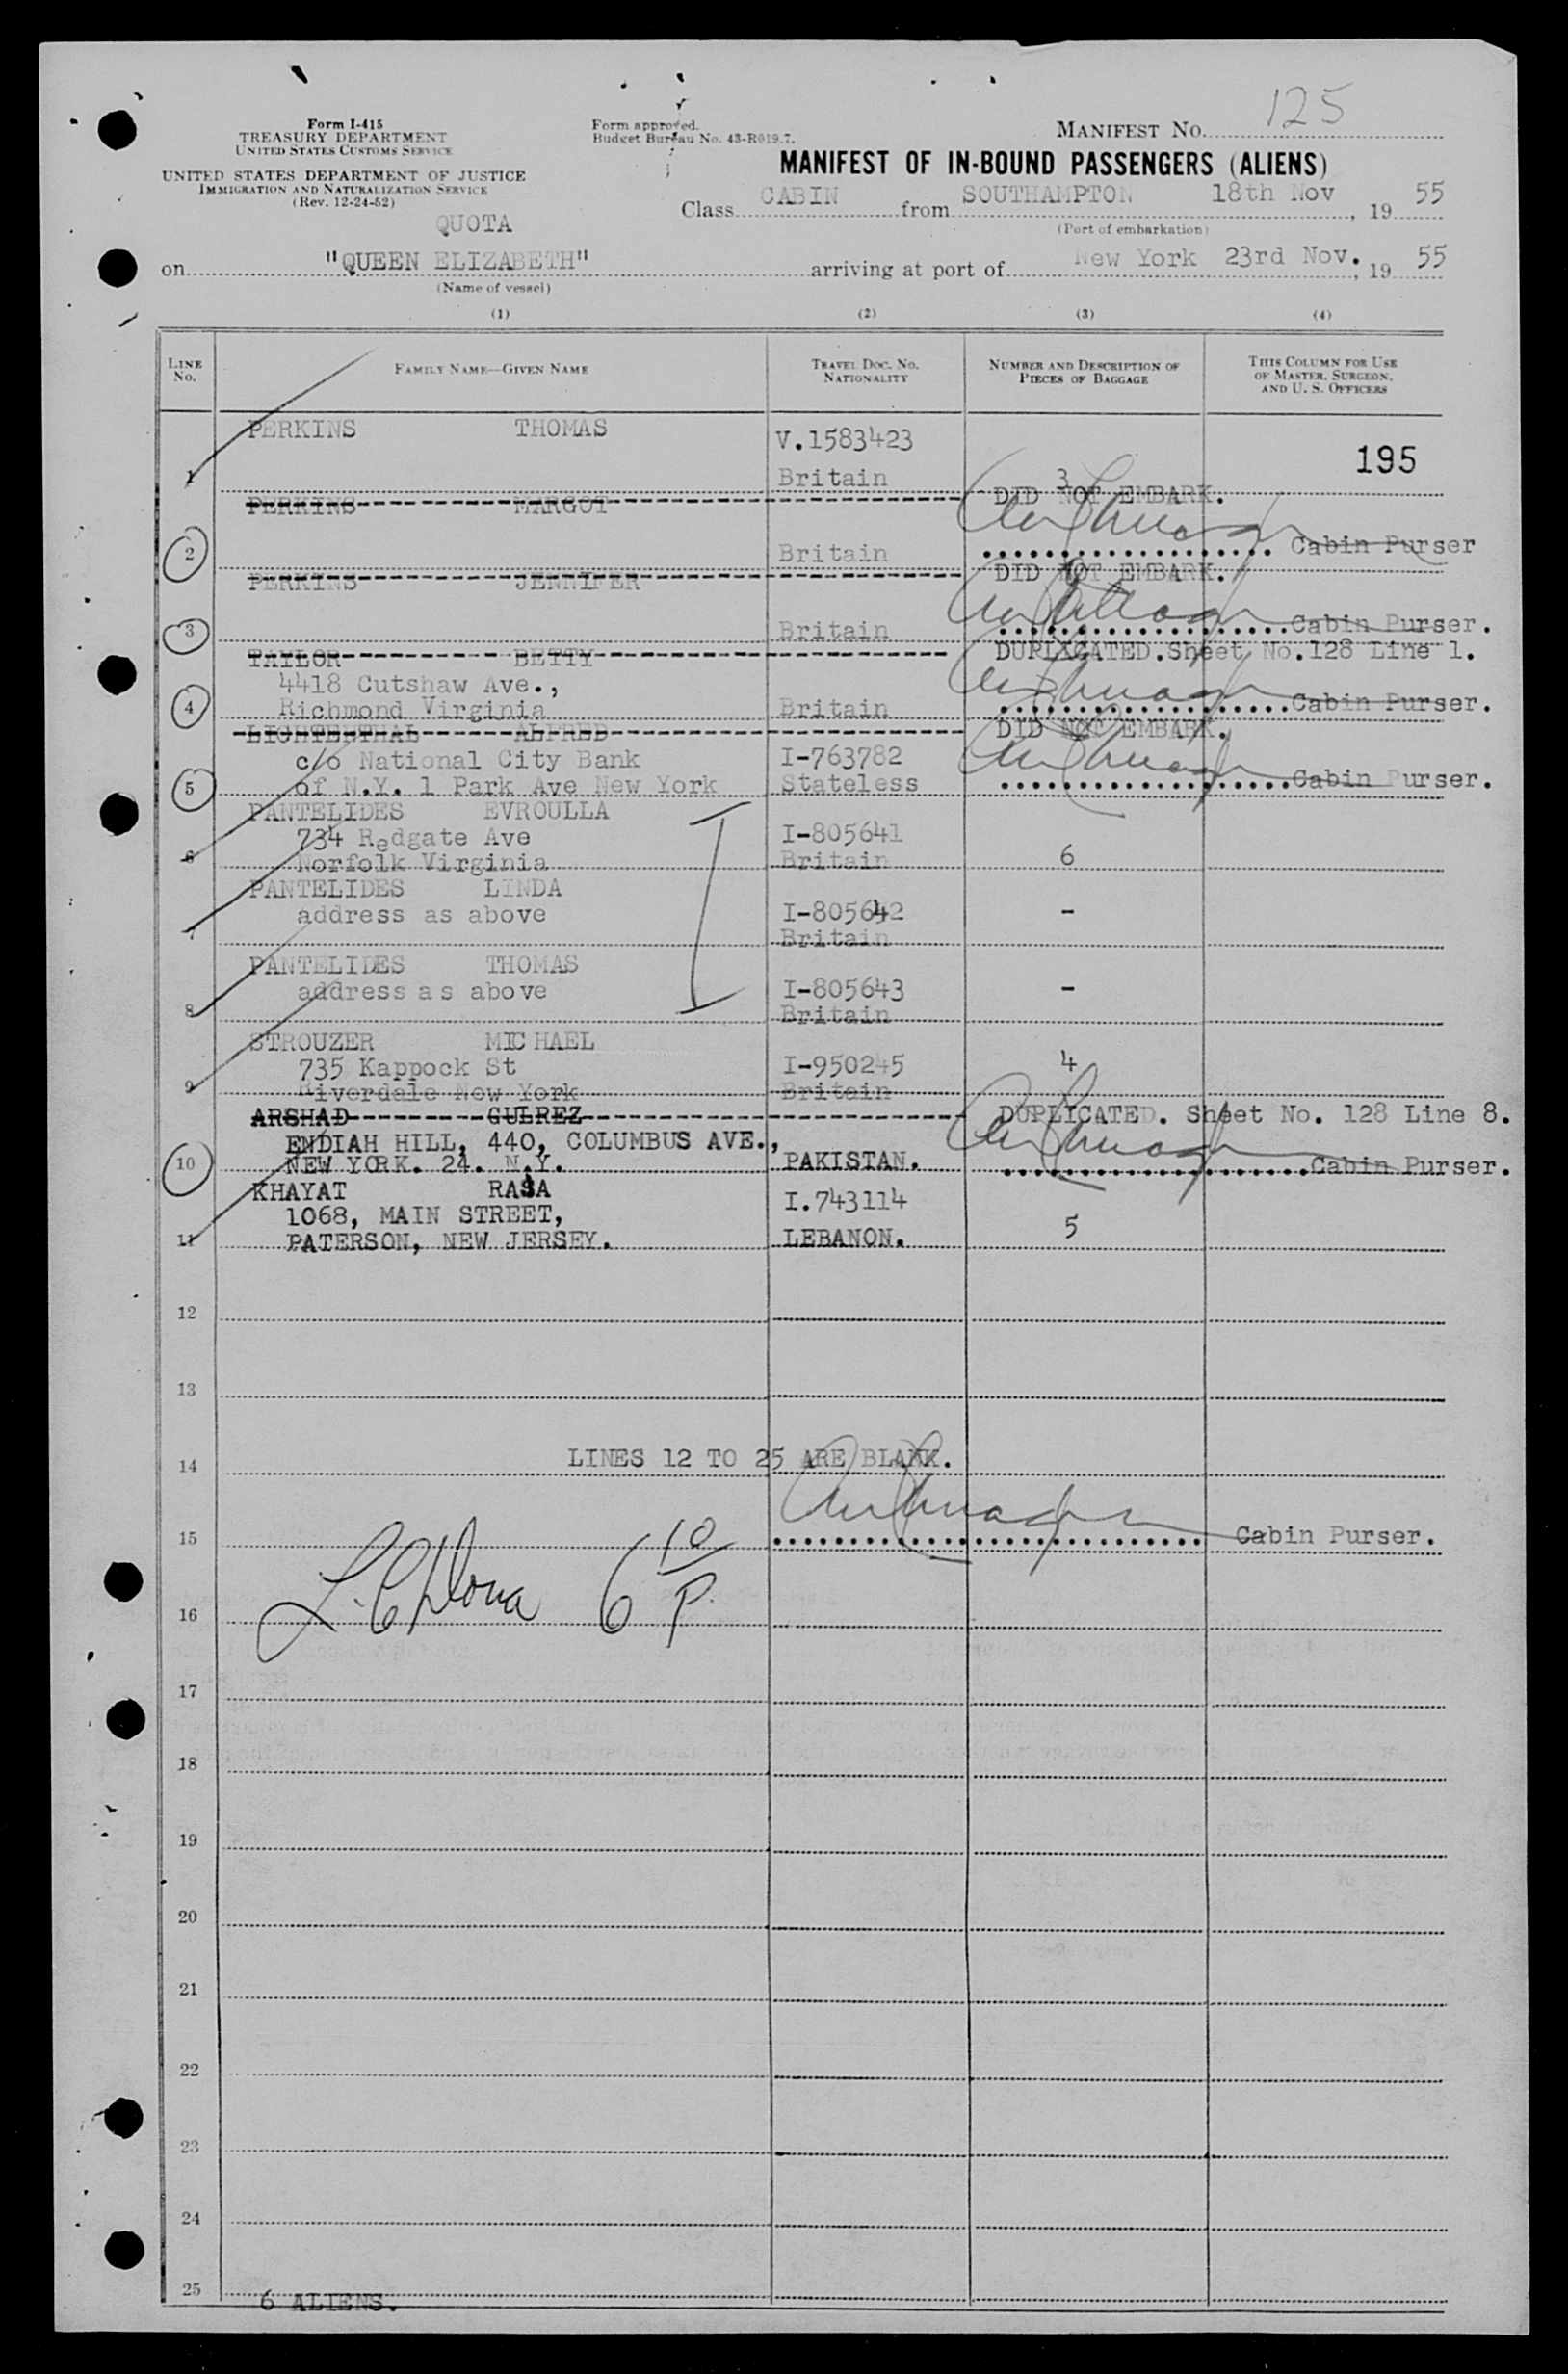 Form I-415
TREASURY DEPARTMENT
UNITED STATES CUSTOMS SERVICE
UNITED STATES DEPARTMENT OF JUSTICE
IMMIGRATION AND NATURALIZATION SERVICE
(Rev. 12-24-52)
Form approved.
Budget Bureau No. 43-R019.7.
MANIFEST NO. 125
MANIFEST OF IN-BOUND PASSENGERS (ALIENS)
Class CABIN from SOUTHAMPTON 18th Nov, 19 55
(Port of embarkation)
QUOTA
on "QUEEN ELIZABETH" arriving at port of New York 23rd Nov., 19 55
(Name of vessel)
(1) (2) (3) (4)
LINE NO.
FAMILY NAME—GIVEN NAME
TRAVEL DOC. NO. NATIONALITY
NUMBER AND DESCRIPTION OF PIECES OF BAGGAGE
THIS COLUMN FOR USE OF MASTER, SURGEON, AND U. S. OFFICERS
PERKINS THOMAS V.1583423
195
1 Britain 3
PERKINS MARGOT DID NOT EMBARK.
2 Britain Cabin Purser
PERKINS JENNIFER DID NOT EMBARK.
3 Britain Cabin Purser.
TAYLOR BETTY DUPLICATED. Sheet No. 128 Line 1.
4418 Cutshaw Ave.,
4 Richmond Virginia Britain Cabin Purser.
LICHTENTHAL ALFRED DID NOT EMBARK.
c/o National City Bank I-763782
5 of N.Y. 1 Park Ave New York Stateless Cabin Purser.
PANTELIDES EVROULLA
734 Redgate Ave I-805641
6 Norfolk Virginia Britain 6
PANTELIDES LINDA
address as above I-805642 -
7 Britain
PANTELIDES THOMAS
address as above I-805643 -
8 Britain
STROUZER MICHAEL
735 Kappock St I-950245 4
9 Riverdale New York Britain
ARSHAD GULREZ DUPLICATED. Sheet No. 128 Line 8.
ENDIAH HILL, 440, COLUMBUS AVE.,
10 NEW YORK. 24. N.Y. PAKISTAN. Cabin Purser.
KHAYAT RASA I.743114
1068, MAIN STREET,
11 PATERSON, NEW JERSEY. LEBANON. 5
12
13
LINES 12 TO 25 ARE BLANK.
14
15 Cabin Purser.
6 10/P.
16
17
18
19
20
21
22
23
24
25
6 ALIENS.